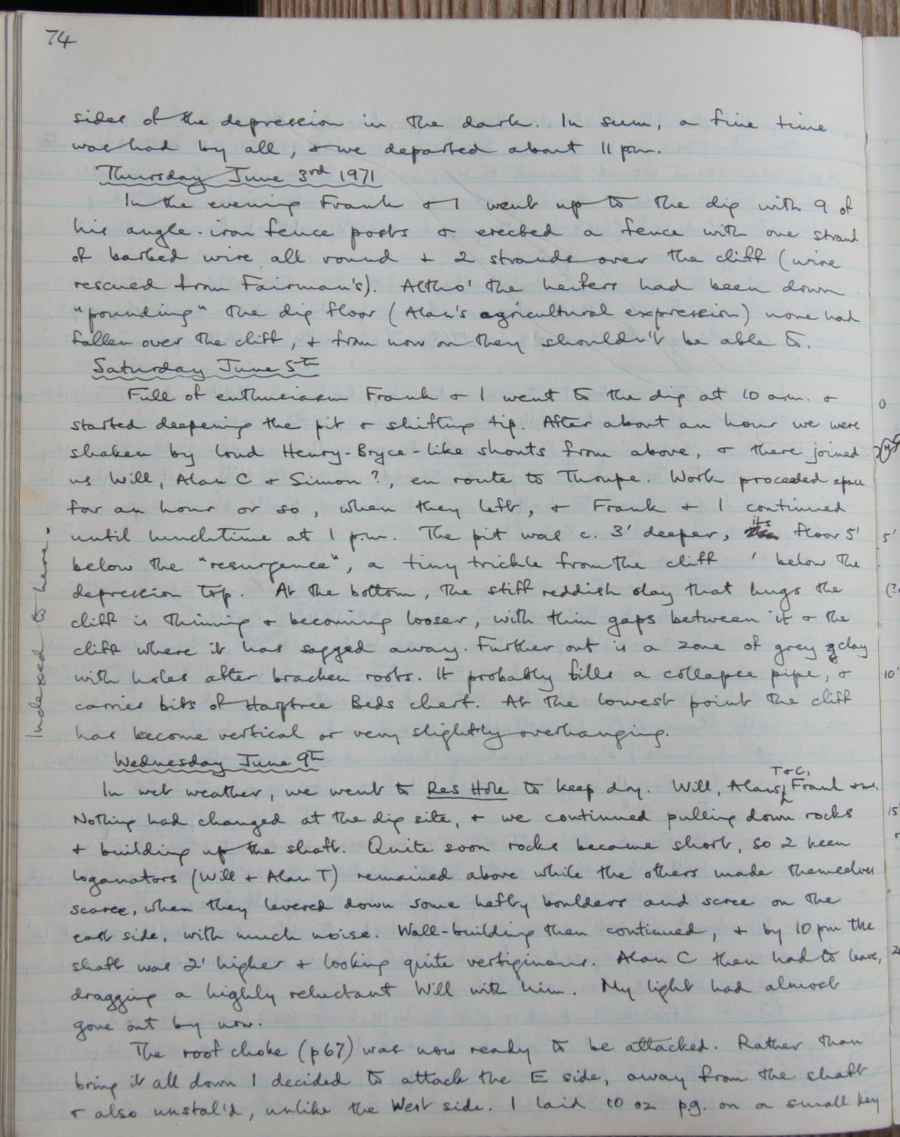 74
sides of the depression in the dark. In sum, a fine time
was had by all, & we departed about 11 pm.
Thursday June 3rd 1971
In the evening Frank & I went up to the dig with 9 of
his angle-iron fence posts & erected a fence with one strand
of barbed wire all round & 2 strands over the cliff (wire
rescued from Fairman's). Altho' the heifers had been down
"pounding" the dig floor (Alan's agricultural expression) none had
fallen over the cliff, & from now on they shouldn't be able to.
Saturday June 5th
Full of enthusiasm Frank & I went to the dig at 10 am. &
started deepening the pit & shifting tip. After about an hour we were
shaken by loud Henry-Bryce-like shouts from above, & there joined
us Will, Alan C & Simon?, en route to Thrupe. Work proceeded apace
for an hour or so, when they left, & Frank & I continued
until lunchtime at 1 pm. The pit was c. 3' deeper, its floor 5'
below the "resurgence", a tiny trickle from the cliff ' below the
depression top. At the bottom, the stiff reddish clay that hugs the
cliff is thinning & becoming looser, with thin gaps between it & the
cliff where it has sagged away. Further out is a zone of grey clay
with holes after bracken roots. It probably fills a collapse pipe, &
carries bits of Harptree Beds chert. At the lowest point the cliff
has become vertical or very slightly overhanging.
Indexed to here -
Wednesday June 9th
In wet weather, we went to Res Hole to keep dry. Will, Alans T & C, Frank & me.
Nothing had changed at the dig site, & we continued pulling down rocks
& building up the shaft. Quite soon rocks became short, so 2 keen
loganators (Will & Alan T) remained above while the others made themselves
scarce, when they levered down some hefty boulders and scree on the
east side, with much noise. Wall-building then continued, & by 10 pm the
shaft was 2' higher & looking quite vertiginous. Alan C then had to leave,
dragging a highly reluctant Will with him. My light had almost
gone out by now.
The roof choke (p67) was now ready to be attacked. Rather than
bring it all down I decided to attack the E side, away from the shaft
& also unstal'd, unlike the West side. I laid 10 oz p.g. on a small key
0
5'
10'
15